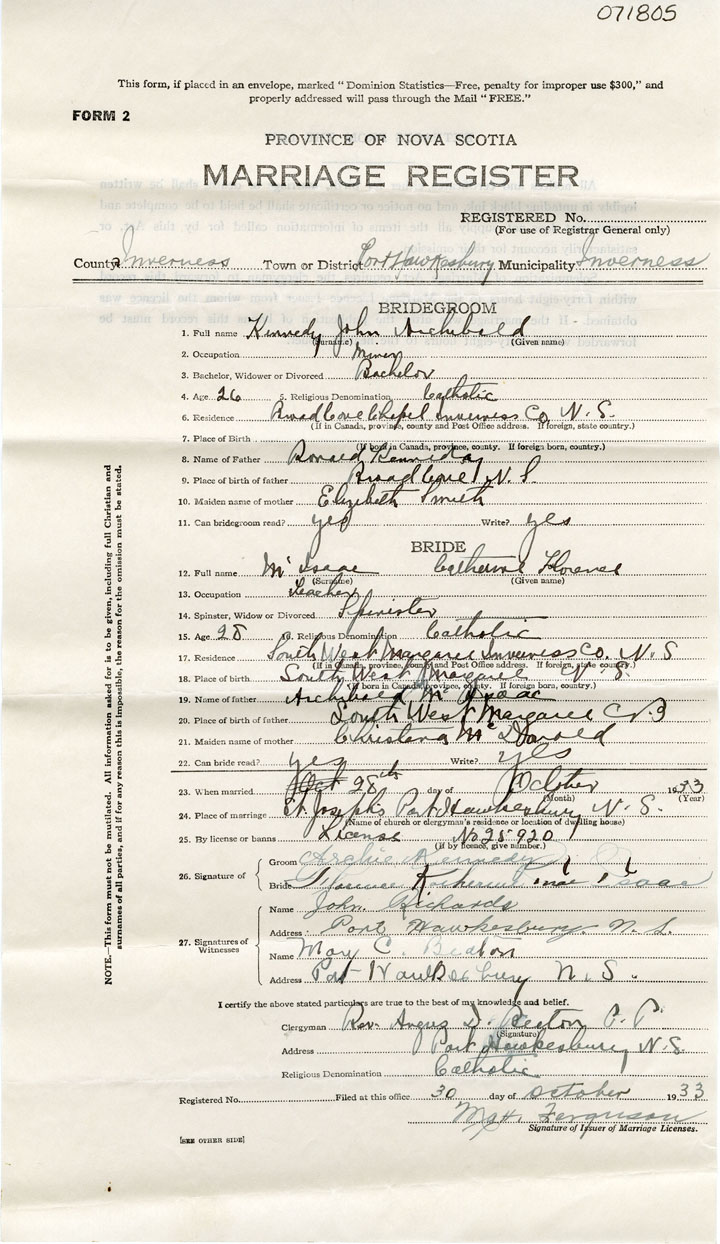 071805
This form, if placed in an envelope, marked "Dominion Statistics—Free, penalty for improper use $300," and
properly addressed will pass through the Mail "FREE."
FORM 2
PROVINCE OF NOVA SCOTIA
MARRIAGE REGISTER
REGISTERED No.
(For use of Registrar General only)
County Inverness Town or District Port Hawkesbury Municipality Inverness
BRIDEGROOM
1. Full name Kennedy John Archibald
(Surname) (Given name)
2. Occupation Miner
3. Bachelor, Widower or Divorced Bachelor
4. Age 26 5. Religious Denomination Catholic
6. Residence Broad Cove Chapel Inverness Co. N. S.
(If in Canada, province, county and Post Office address. If foreign, state country.)
7. Place of Birth
(If born in Canada, province, county. If foreign born, country.)
8. Name of Father Ronald Kennedy
9. Place of birth of father Broad Cove N. S.
10. Maiden name of mother Elizabeth Smith
11. Can bridegroom read? yes Write? yes
BRIDE
12. Full name Mc Isaac Catherine Florence
(Surname) (Given name)
13. Occupation Teacher
14. Spinster, Widow or Divorced Spinster
15. Age 28 16. Religious Denomination Catholic
17. Residence South West Margaree Inverness Co. N. S
(If in Canada, province, county and Post Office address. If foreign, state country.)
18. Place of birth South West Margaree N. S.
(If born in Canada, province, county. If foreign born, country.)
19. Name of father Archibald Mc Isaac
20. Place of birth of father South West Margaree
21. Maiden name of mother Christena Mc Donald
22. Can bride read? yes Write? yes
23. When married 28th day of October 1933
(Month) (Year)
24. Place of marriage St Joseph's Port Hawkesbury N. S.
(Name of church or clergyman's residence or location of dwelling house)
25. By license or banns License No 25920
(If by licence, give number.)
26. Signature of
Groom Archie Kennedy
Bride Florence Isaac
27. Signatures of Witnesses
Name John Richards
Address Port Hawkesbury N. S.
Name Mary C. Beaton
Address Port Hawkesbury N. S.
I certify the above stated particulars are true to the best of my knowledge and belief.
Clergyman Rev. Angus D. Beaton P. P.
(Signature)
Address Port Hawkesbury N. S.
Religious Denomination Catholic
Registered No. Filed at this office 30 day of October 1933
Ferguson
Signature of Issuer of Marriage Licenses.
[SEE OTHER SIDE]
NOTE.—This form must not be mutilated. All information asked for is to be given, including full Christian and
surnames of all parties, and if for any reason this is impossible, the reason for the omission must be stated.